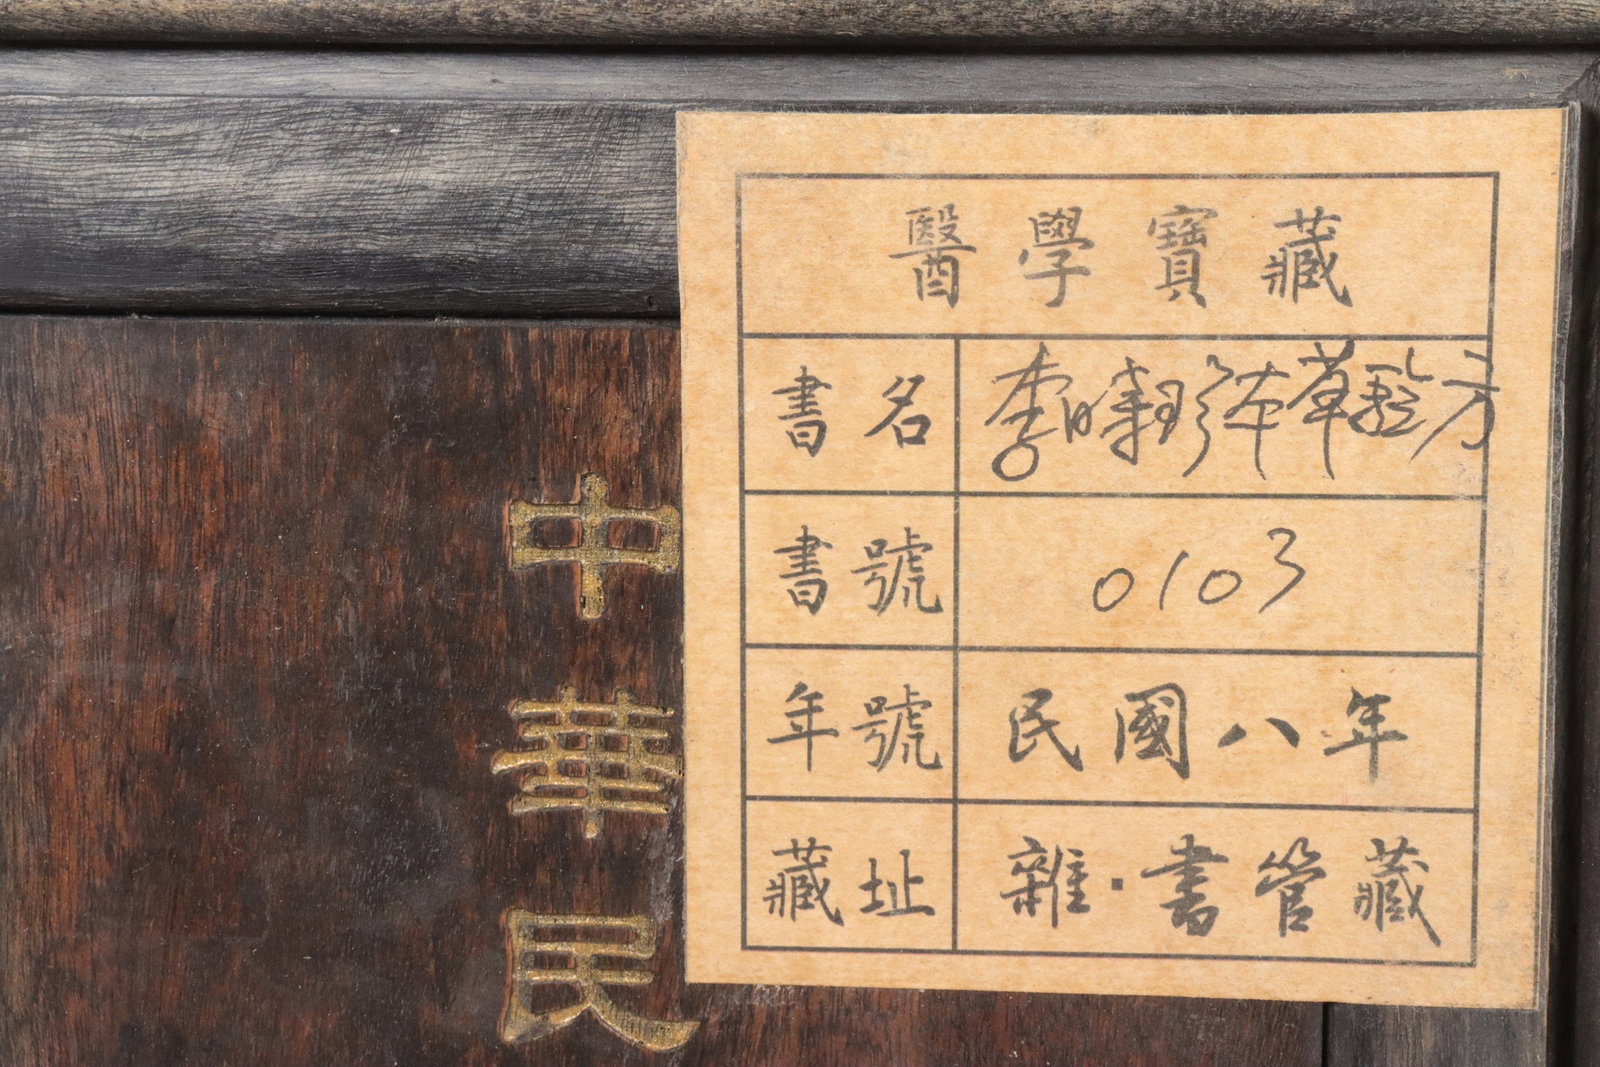 醫學寶藏
書名 李時珍本草驗方
書號 0103
年號 民國八年
藏址 雜·書管藏
中華民